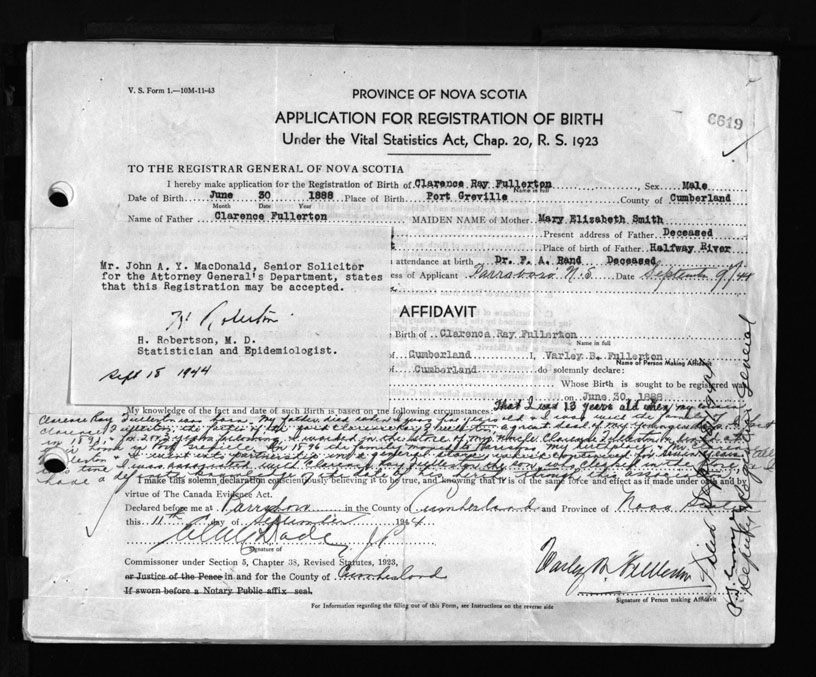 V. S. Form 1.—10M-11-43
PROVINCE OF NOVA SCOTIA
APPLICATION FOR REGISTRATION OF BIRTH
Under the Vital Statistics Act, Chap. 20, R. S. 1923
6619
TO THE REGISTRAR GENERAL OF NOVA SCOTIA
I hereby make application for the Registration of Birth of Clarence Ray Fullerton Sex Male
Name in full
Date of Birth June 30 1888 Place of Birth Port Greville County of Cumberland
Month Date Year
Name of Father Clarence Fullerton MAIDEN NAME of Mother Mary Elizabeth Smith
Present address of Father Deceased
Place of birth of Father Halfway River
attendance at birth Dr. F. A. Rand Deceased
ess of Applicant Parrsboro N. S. Date September 9/44
Mr. John A. Y. MacDonald, Senior Solicitor
for the Attorney General's Department, states
that this Registration may be accepted.
H. Robertson
H. Robertson, M. D.
Statistician and Epidemiologist.
Sept 15 1944
AFFIDAVIT
Birth of Clarence Ray Fullerton
Name in full
of Cumberland I, Varley B. Fullerton
Name of Person Making Affidavit
of Cumberland do solemnly declare:
Whose Birth is sought to be registered was
on June 30, 1888
My knowledge of the fact and date of such Birth is based on the following circumstances: That I was 13 years old when my cousin
Clarence Ray Fullerton was born. My father died when I was years old & I was with the family of
Clarence Fullerton, the father of the said Clarence Ray Fullerton, a great deal of my younger days.
in 1891 for 2 or 3 years following, I worked in the store of my Uncle Clarence Fullerton &
In 1896 the family moved to
Fullerton & I went into partnership in a general store, which continued for seven years
time I was associated with Clarence Ray Fullerton the son, who clerked in
have a
I make this solemn declaration conscientiously believing it to be true, and knowing that it is of the same force and effect as if made under oath and by
virtue of The Canada Evidence Act.
Declared before me at Parrsboro in the County of Cumberland and Province of Nova Scotia
this 11th day of September 1944
J P
Signature of
Commissioner under Section 5, Chapter 38, Revised Statutes, 1923,
or Justice of the Peace in and for the County of Cumberland
If sworn before a Notary Public affix seal.
Varley B. Fullerton
Signature of Person making Affidavit
For Information regarding the filling out of this Form, see Instructions on the reverse side
Deputy Registrar General